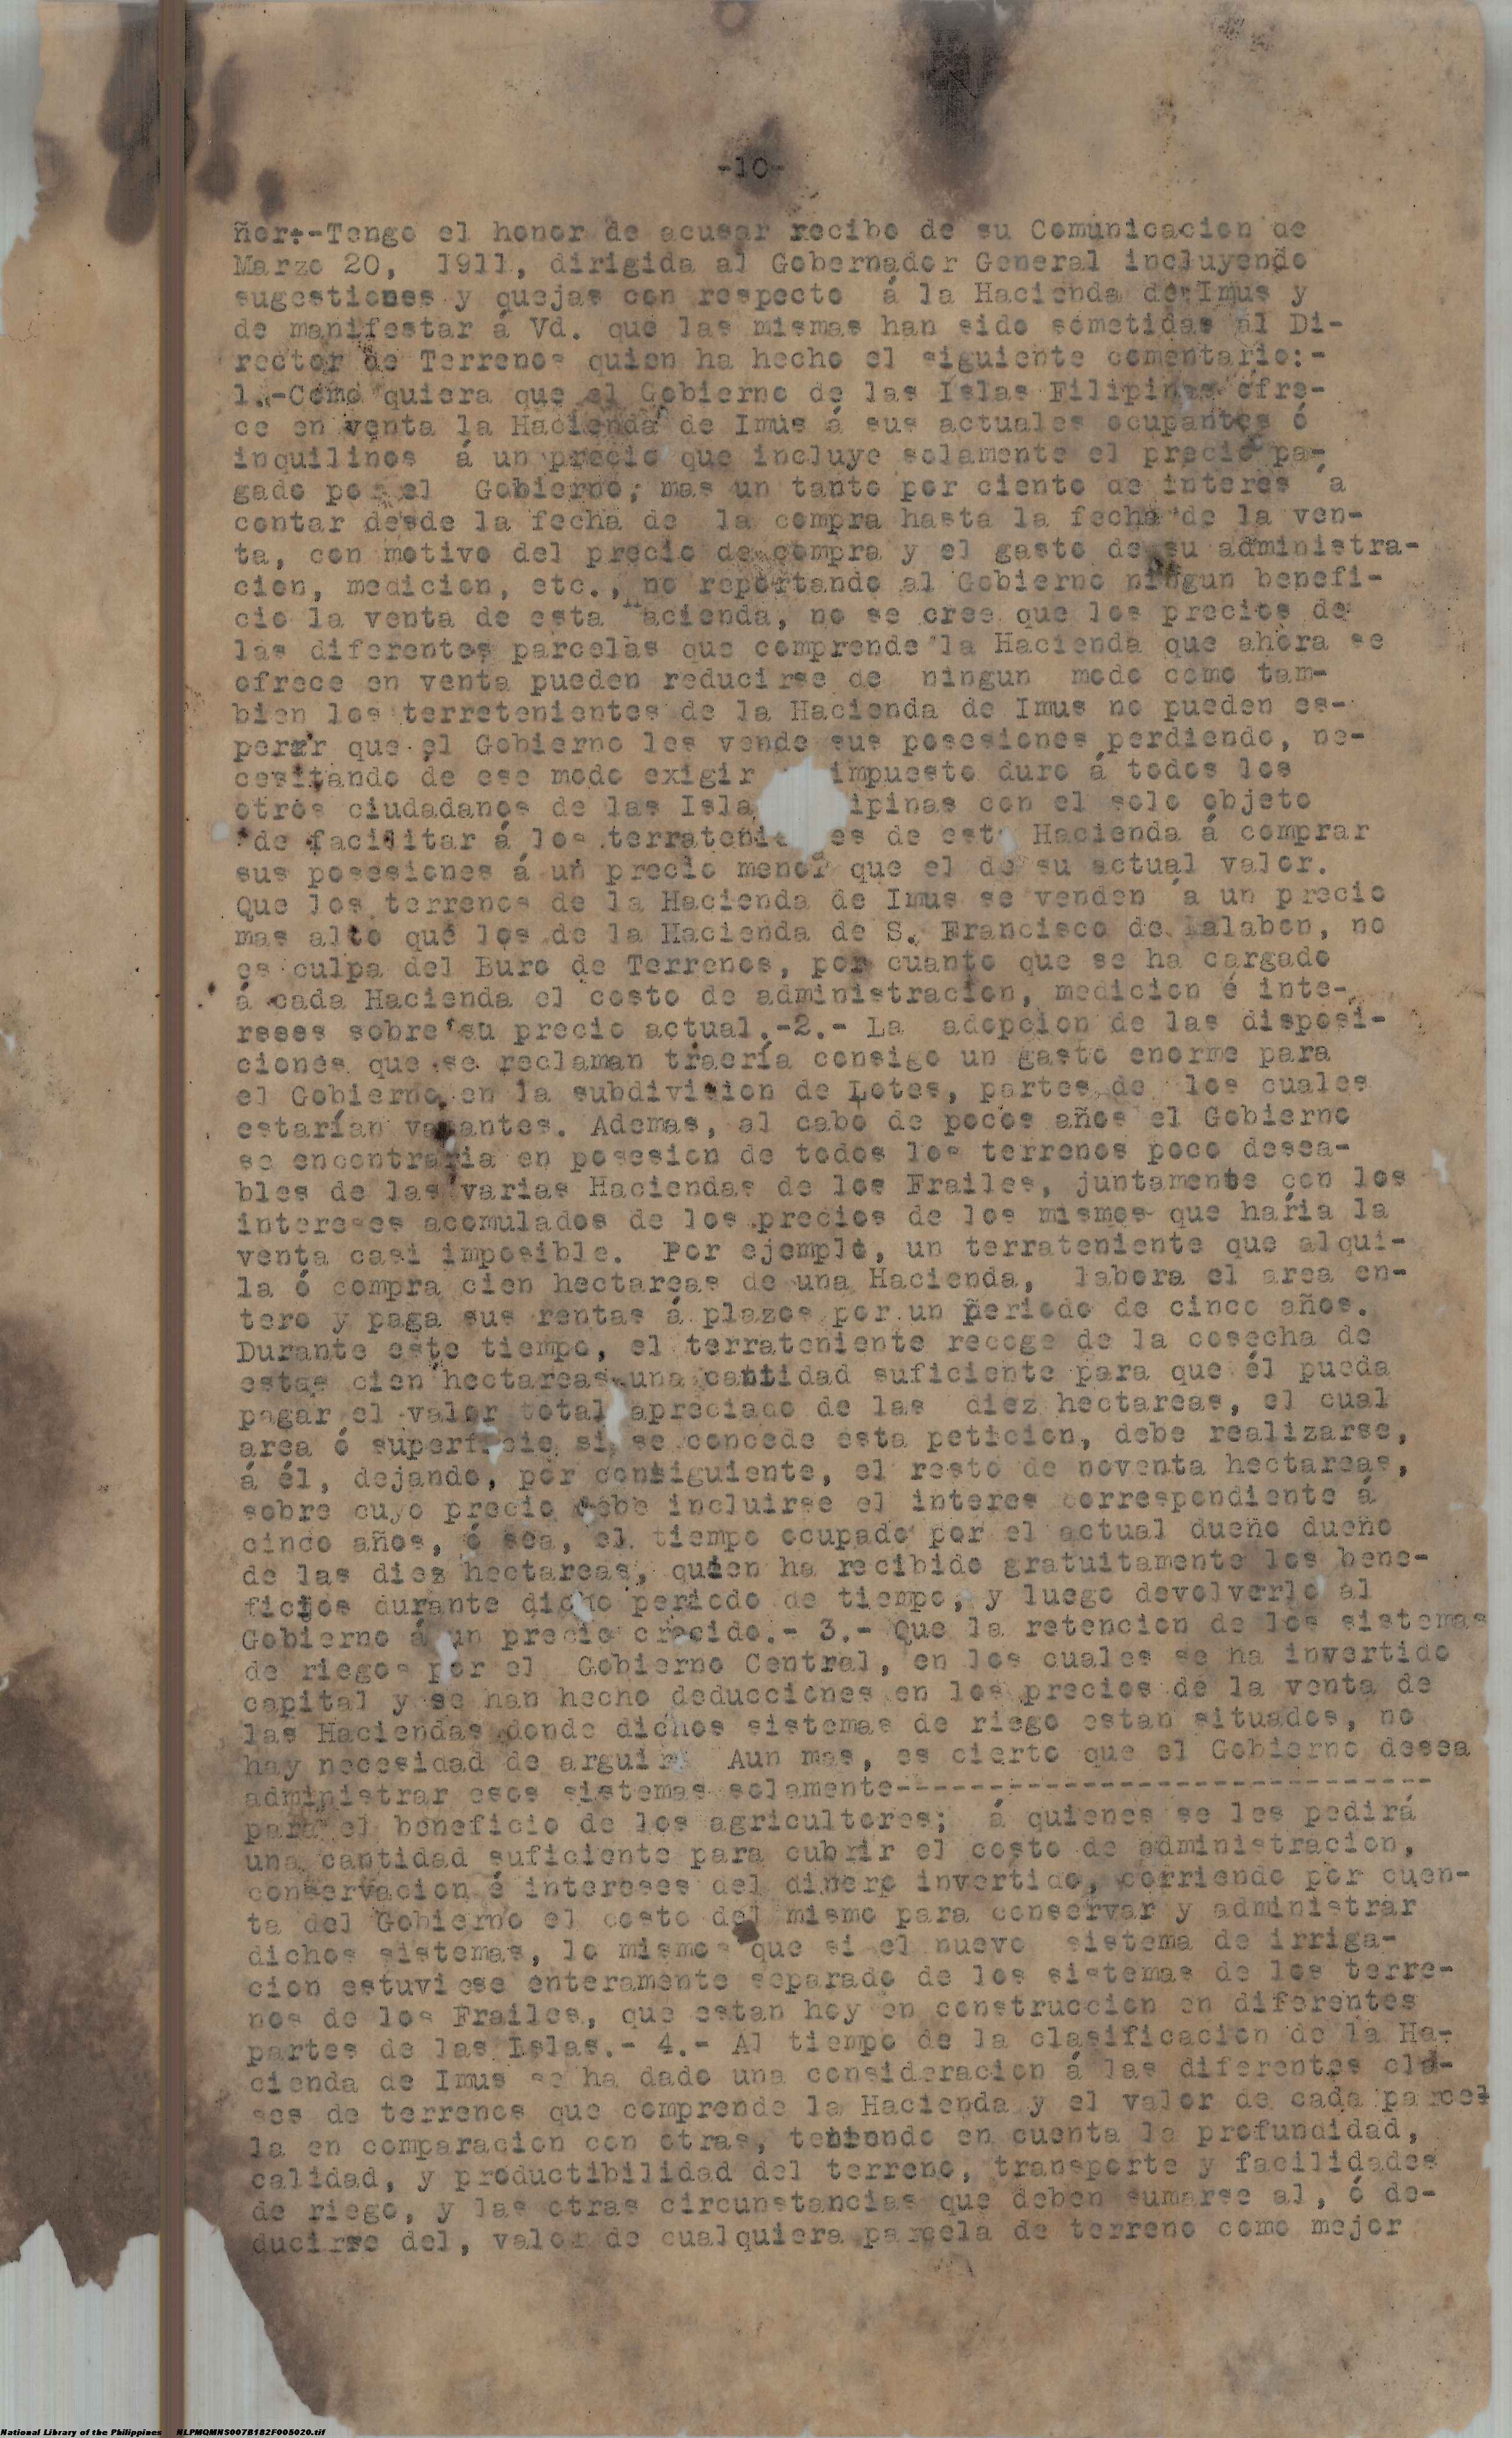 -10-
ñor:-Tengo el honor de acusar recibo de su Comunicacion de
Marzo 20, 1911, dirigida al Gobernador General incluyendo
sugestiones y quejas con respecto á la Hacienda de Imus y
de manifestar á Vd. que las mismas han sido sometidas al Di-
rector de Terrenos quien ha hecho el siguiente comentario:-
1.-Como quiera que el Gobierno de las Islas Filipinas ofre-
ce en venta la Hacienda de Imus á sus actuales ocupantes ó
inquilinos á un precio que incluye solamente el precio pa-
gado por el Gobierno, mas un tanto por ciento de interes á
contar desde la fecha de la compra hasta la fecha de la ven-
ta, con motivo del precio de compra y el gasto de su administra-
cion, medicion, etc., no reportando al Gobierno ningun benefi-
cio la venta de esta Hacienda, no se cree que los precios de
las diferentes parcelas que comprende la Hacienda que ahora se
ofrece en venta pueden reducirse de ningun modo como tam-
bien los terretenientes de la Hacienda de Imus no pueden es-
perar que el Gobierno les vende sus posesiones perdiendo, ne-
cesitando de ese modo exigir impuesto duro á todos los
otros ciudadanos de las Isla ipinas con el solo objeto
de facilitar á los terrateni es de est Hacienda á comprar
sus posesiones á un precio menor que el de su actual valor.
Que los terrenos de la Hacienda de Imus se venden á un precio
mas alto que los de la Hacienda de S. Francisco de Malabon, no
es culpa del Buro de Terrenos, por cuanto que se ha cargado
á cada Hacienda el costo de administracion, medicion é inte-
reses sobre su precio actual.-2.- La adopcion de las disposi-
ciones que se reclaman traería consigo un gasto enorme para
el Gobierno en la subdivision de Lotes, partes de los cuales
estarían vacantes. Ademas, al cabo de pocos años el Gobierno
se encontraria en posesion de todos los terrenos poco desea-
bles de las varias Haciendas de los Frailes, juntamente con los
intereses acomulados de los precios de los mismos que haría la
venta casi imposible. Por ejemplo, un terrateniente que alqui-
la ó compra cien hectareas de una Hacienda, labora el area en-
tero y paga sus rentas á plazos por un periodo de cinco años.
Durante este tiempo, el terrateniente recoge de la cosecha de
estas cien hectareas una cantidad suficiente para que él pueda
pagar el valor total apreciado de las diez hectareas, el cual
area ó superficie si se concede esta peticion, debe realizarse,
á él, dejando, por consiguiente, el resto de noventa hectareas,
sobre cuyo precio debe incluirse el interes correspondiente á
cinco años, ó sea, el tiempo ocupado por el actual dueño dueño
de las diez hectareas, quien ha recibido gratuitamente los bene-
ficios durante dicho periodo de tiempo, y luego devolverlo al
Gobierno á un precio crecido.- 3.- Que la retencion de los sistemas
de riegos por el Gobierno Central, en los cuales se ha invertido
capital y se han hecho deducciones en los precios de la venta de
las Haciendas donde dichos sistemas de riego estan situados, no
hay necesidad de arguir. Aun mas, es cierto que el Gobierno desea
administrar esos sistemas solamente-----------------------------
para el beneficio de los agricultores; á quienes se les pedirá
una cantidad suficiente para cubrir el costo de administracion,
conservacion é intereses del dinero invertido, corriendo por cuen-
ta del Gobierno el costo del mismo para conservar y administrar
dichos sistemas, lo mismos que si el nuevo sistema de irriga-
cion estuviese enteramente separado de los sistemas de los terre-
nos de los Frailes, que estan hoy en construccion en diferentes
partes de las Islas.- 4.- Al tiempo de la clasificacion de la Ha-
cienda de Imus se ha dado una consideracion á las diferentes cla-
ses de terrenos que comprende la Hacienda y el valor de cada parce-
la en comparacion con otras, teniendo en cuenta la profundidad,
calidad, y productibilidad del terreno, transporte y facilidades
de riego, y las otras circunstancias que deben sumarse al, ó de-
ducirse del, valor de cualquiera parcela de terreno como mejor
National Library of the Philippines NLPMQMNS007B182F005020.tif